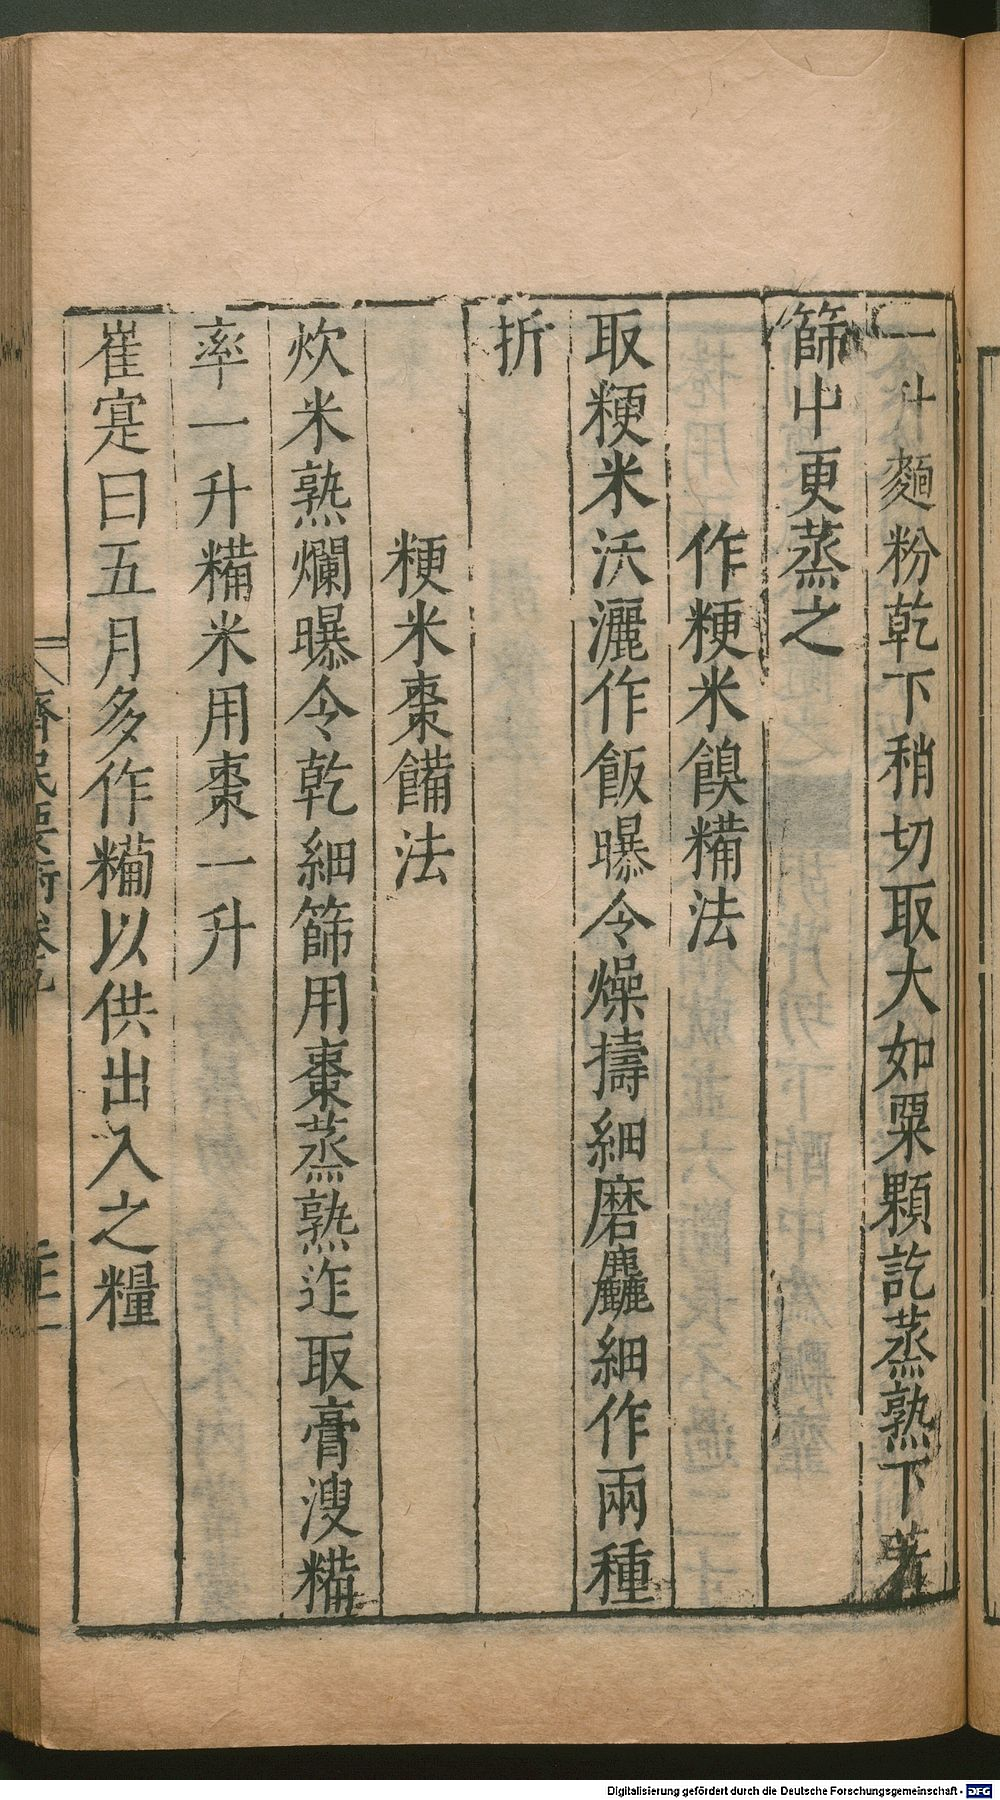 一升麵粉乾下稍切取大如粟顆訖蒸熟下著
篩中更蒸之
作粳米餭糒法
取粳米沃灑作飯曝令燥擣細磨麤細作兩種
折
粳米棗糒法
炊米熟爛曝令乾細篩用棗蒸熟迮取膏溲糒
率一升糒米用棗一升
崔寔曰五月多作糒以供出入之糧
齊民要術卷九
Digitalisierung gefördert durch die Deutsche Forschungsgemeinschaft - DFG